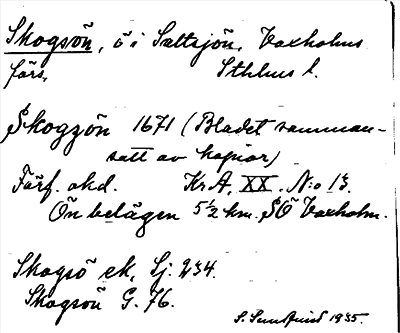 Skogsön, ö i Saltsjön, Vaxholms
förs. Sthlms l.
Skogzön 1671 (Bladet samman-
satt av kopior)
Förf. okd. KrA, XX. N:o 13.
Ön belägen 5½ km. SÖ Vaxholm.
Skogsö ek. Sj. 234.
Skogsön G. 76.
S. Sundqvist 1935.